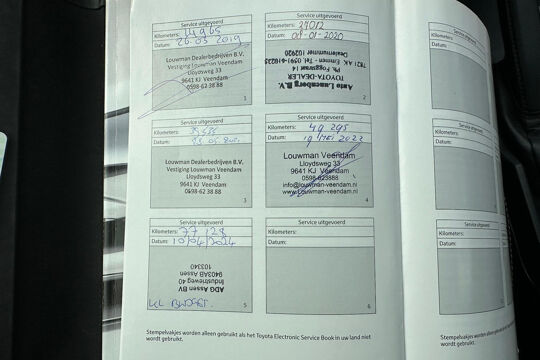 Service uitgevoerd
Kilometers: 14965
Datum: 26.03 2019
Louwman Dealerbedrijven B.V.
Vestiging Louwman Veendam
Lloydsweg 33
9641 KJ Veendam
0598-62 38 88
1
Service uitgevoerd
Kilometers: 27012
Datum: 08-01-2020
Auto Lauenberg B.V.
TOYOTA-DEALER
Ph. Foggstraat 14
7821 AK Emmen
Dealernummer 102920
2
Service uitgevoerd
Kilometers:
Datum:
Louwman Dealerbedrijven B.V.
Vestiging Louwman Veendam
Lloydsweg 33
9641 KJ Veendam
0598-62 38 88
3
Service uitgevoerd
Kilometers: 49 295
Datum: 19 MEI 2022
Louwman Veendam
Lloydsweg 33
9641 KJ Veendam
0598-623888
info@louwman-veendam.nl
www.louwman-veendam.nl
4
Service uitgevoerd
Kilometers: 77 128
Datum: 10/04/2024
ADG Assen BV
Industrieweg 40
9403AB Assen
103340
5
Service uitgevoerd
Kilometers:
Datum:
6
Stempelvakjes worden alleen gebruikt als het Toyota Electronic Service Book in uw land niet
wordt gebruikt.
Service uitgevoerd
Kilometers:
Datum:
Service uitgevoerd
Kilometers:
Datum:
Service uitgevoerd
Kilometers:
Datum: